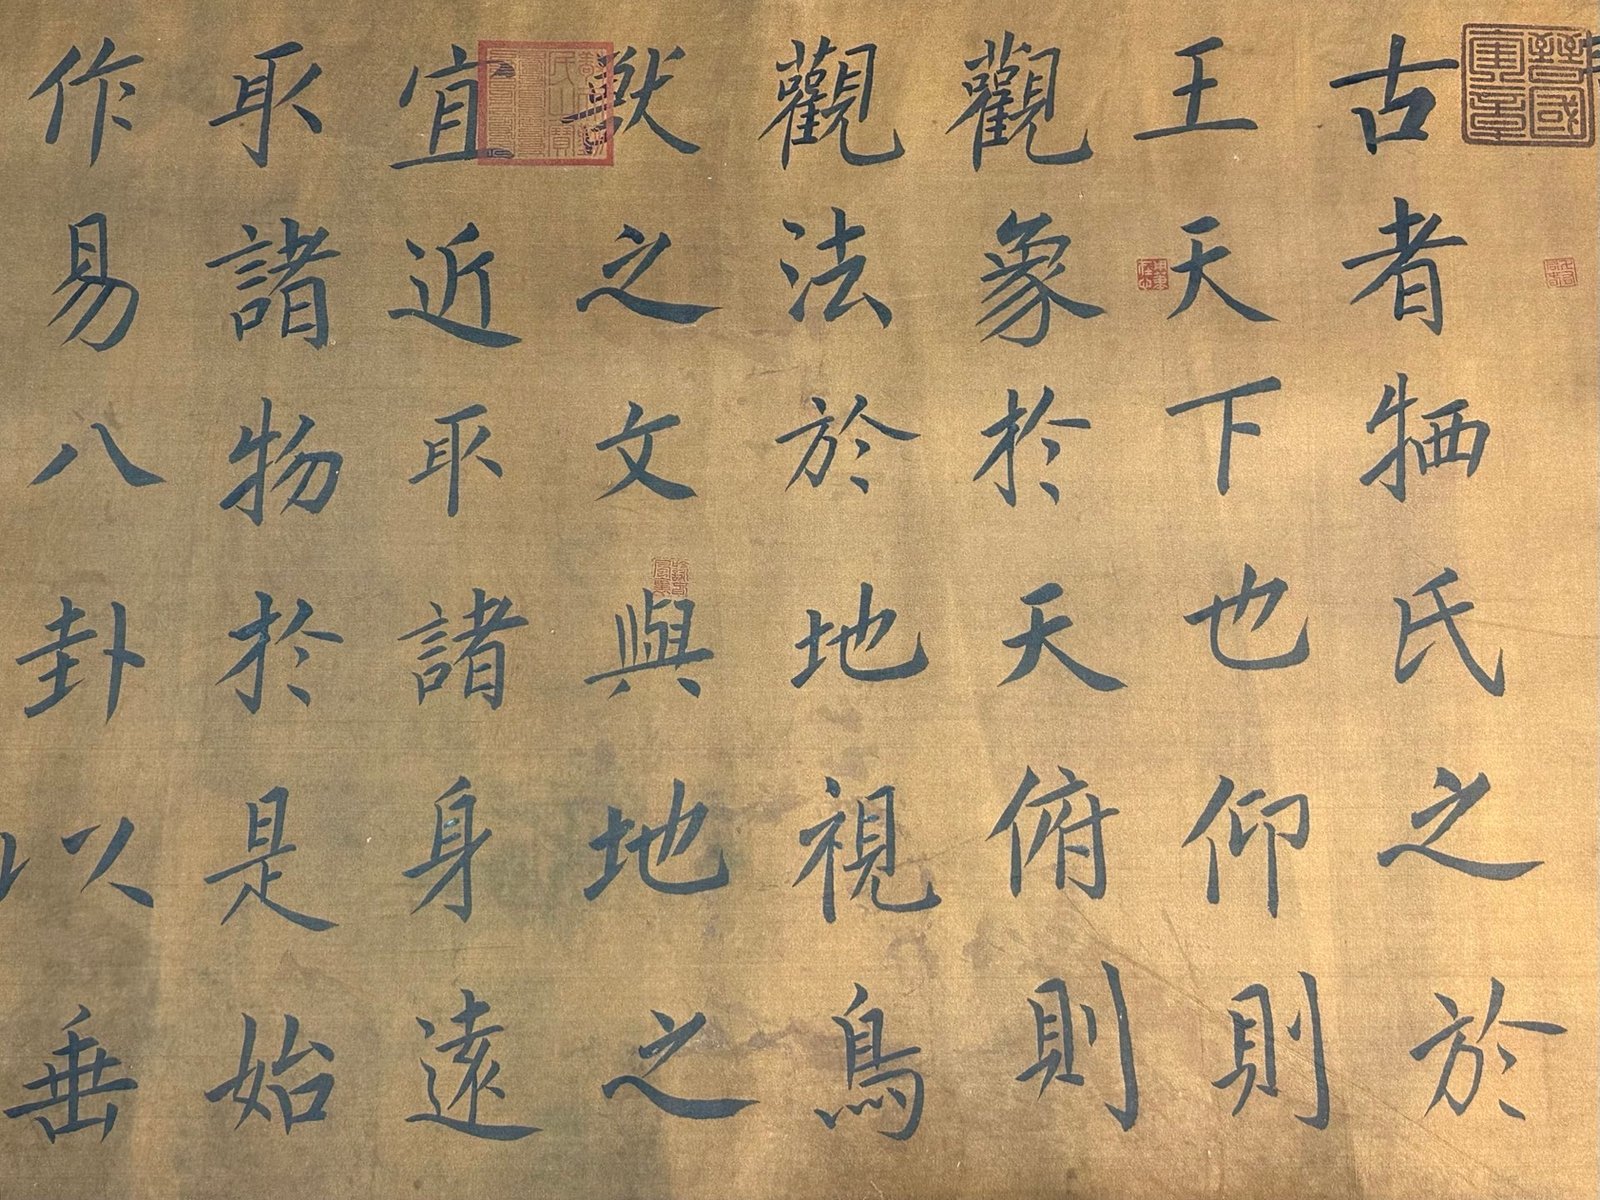 古者牺氏之於
王天下也仰則
觀象於天俯則
觀法於地視鳥
獸之文與地之
宜近取諸身遠
取諸物於是始
作易八卦以垂